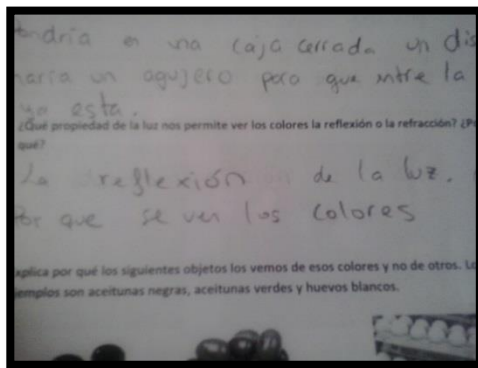 tendria en una caja cerrada un dis
haria un agujero para que entre la
ya esta.
¿Qué propiedad de la luz nos permite ver los colores la reflexión o la refracción? ¿Po
qué?
La reflexión de la luz.
Por que se ven los colores
xplica por qué los siguientes objetos los vemos de esos colores y no de otros. Lo
jemplos son aceitunas negras, aceitunas verdes y huevos blancos.